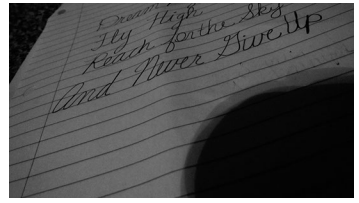 Dream
Fly High
Reach for the Sky
And Never Give Up